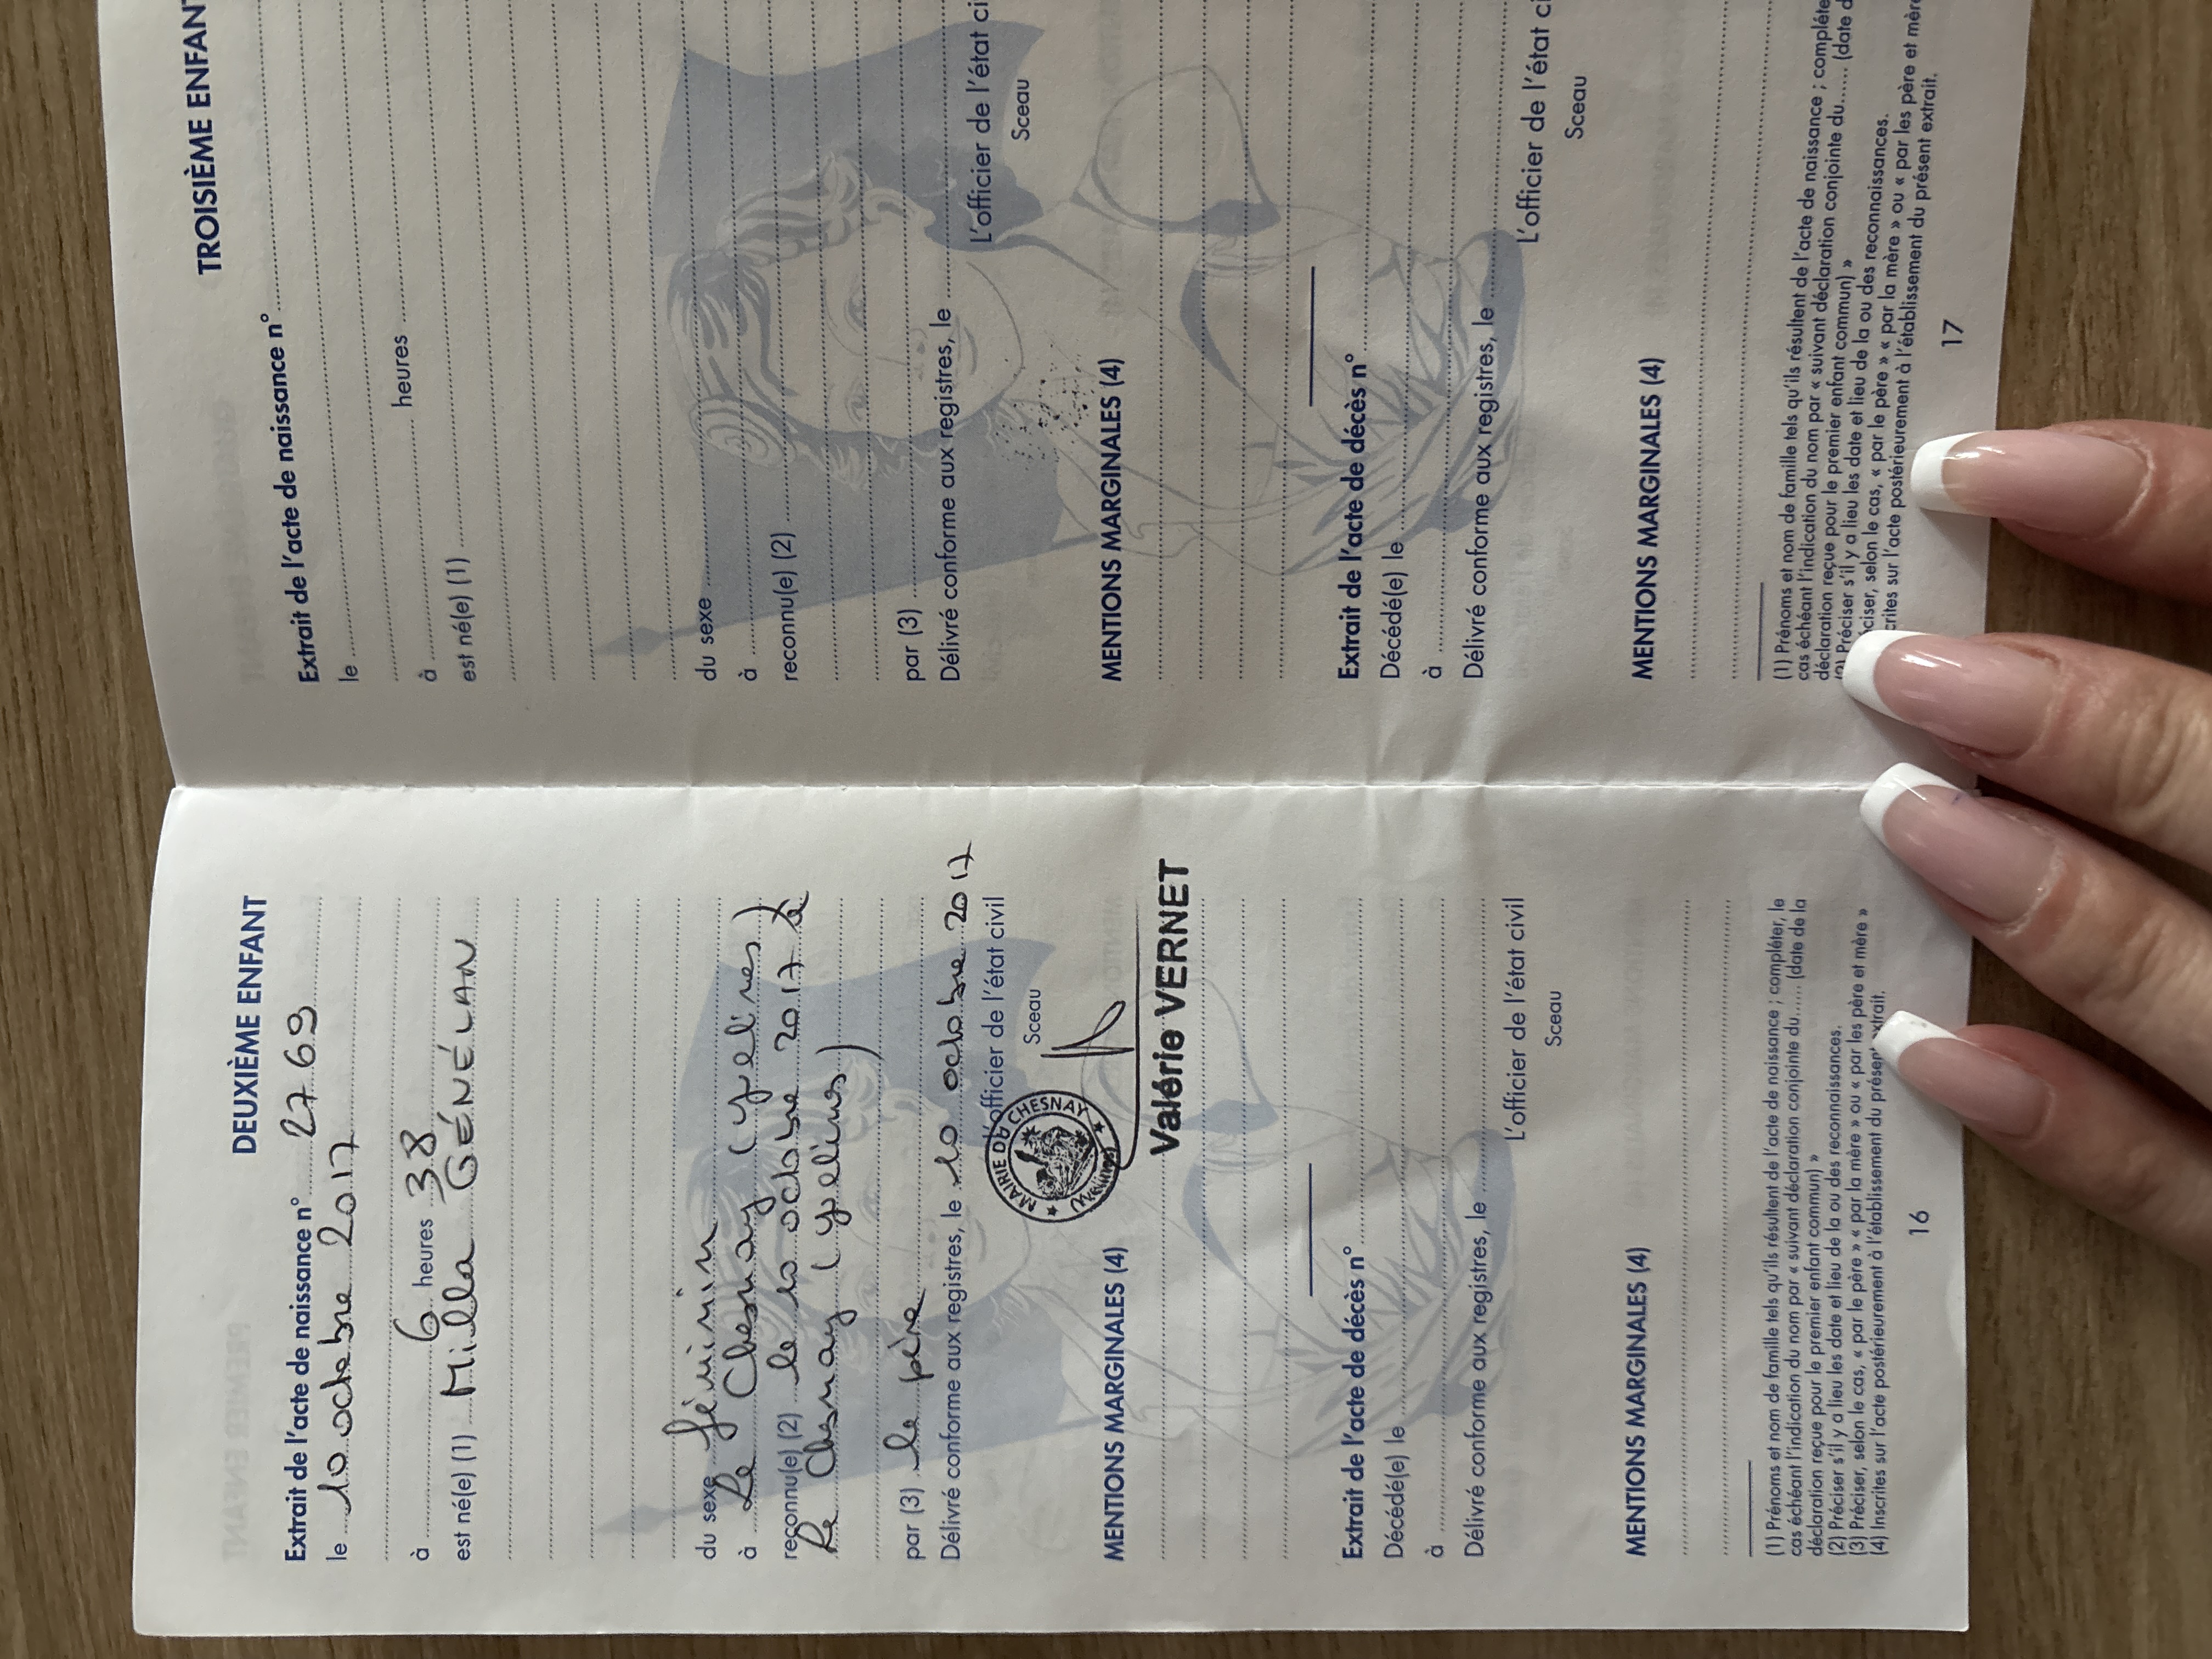 DEUXIÈME ENFANT
Extrait de l'acte de naissance n° 2769
le 10 octobre 2017
à 6 heures 38
est né(e) (1) Milla GÉNÉLAN
du sexe féminin
à Le Chesnay (Yvelines)
reconnu(e) (2) le 10 octobre 2017 à
Le Chesnay (Yvelines)
par (3) le père
Délivré conforme aux registres, le 10 octobre 2017
L'officier de l'état civil
Sceau
MAIRIE DU CHESNAY
Yvelines
MENTIONS MARGINALES (4)
Valérie VERNET
Extrait de l'acte de décès n°
Décédé(e) le
à
Délivré conforme aux registres, le
L'officier de l'état civil
Sceau
MENTIONS MARGINALES (4)
(1) Prénoms et nom de famille tels qu'ils résultent de l'acte de naissance ; compléter, le
cas échéant l'indication du nom par « suivant déclaration conjointe du...... (date de la
déclaration reçue pour le premier enfant commun) »
(2) Préciser s'il y a lieu les date et lieu de la ou des reconnaissances.
(3) Préciser, selon le cas, « par le père » « par la mère » ou « par les père et mère »
(4) Inscrites sur l'acte postérieurement à l'établissement du présent extrait.
16
TROISIÈME ENFANT
Extrait de l'acte de naissance n°
le
heures
à
est né(e) (1)
du sexe
à
reconnu(e) (2)
par (3)
Délivré conforme aux registres, le
L'officier de l'état ci
Sceau
MENTIONS MARGINALES (4)
Extrait de l'acte de décès n°
Décédé(e) le
à
Délivré conforme aux registres, le
L'officier de l'état ci
Sceau
MENTIONS MARGINALES (4)
(1) Prénoms et nom de famille tels qu'ils résultent de l'acte de naissance ; compléte
cas échéant l'indication du nom par « suivant déclaration conjointe du...... (date d
déclaration reçue pour le premier enfant commun) »
(2) Préciser s'il y a lieu les date et lieu de la ou des reconnaissances.
ciser, selon le cas, « par le père » « par la mère » ou « par les père et mère
crites sur l'acte postérieurement à l'établissement du présent extrait.
17